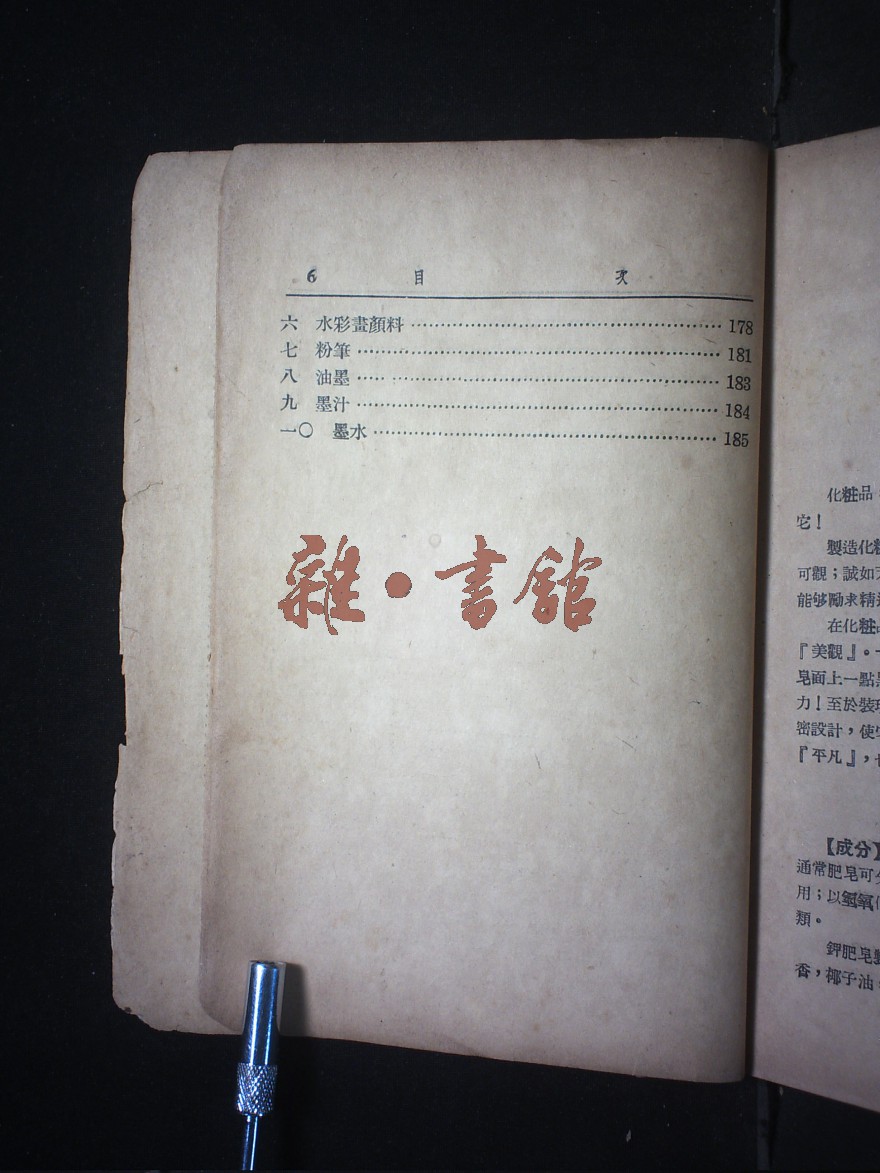 6 目 次
六 水彩畫顏料 178
七 粉筆 181
八 油墨 183
九 墨汁 184
一〇 墨水 185
雜•書館
化粧品
它！
製造化粧
可觀；誠如
能够勵求精
在化粧品
『美觀』。
皂面上一點
力！至於裝
密設計，使
『平凡』，
【成分】
通常肥皂可
用；以氫氧
類。
鉀肥皂
香，椰子油